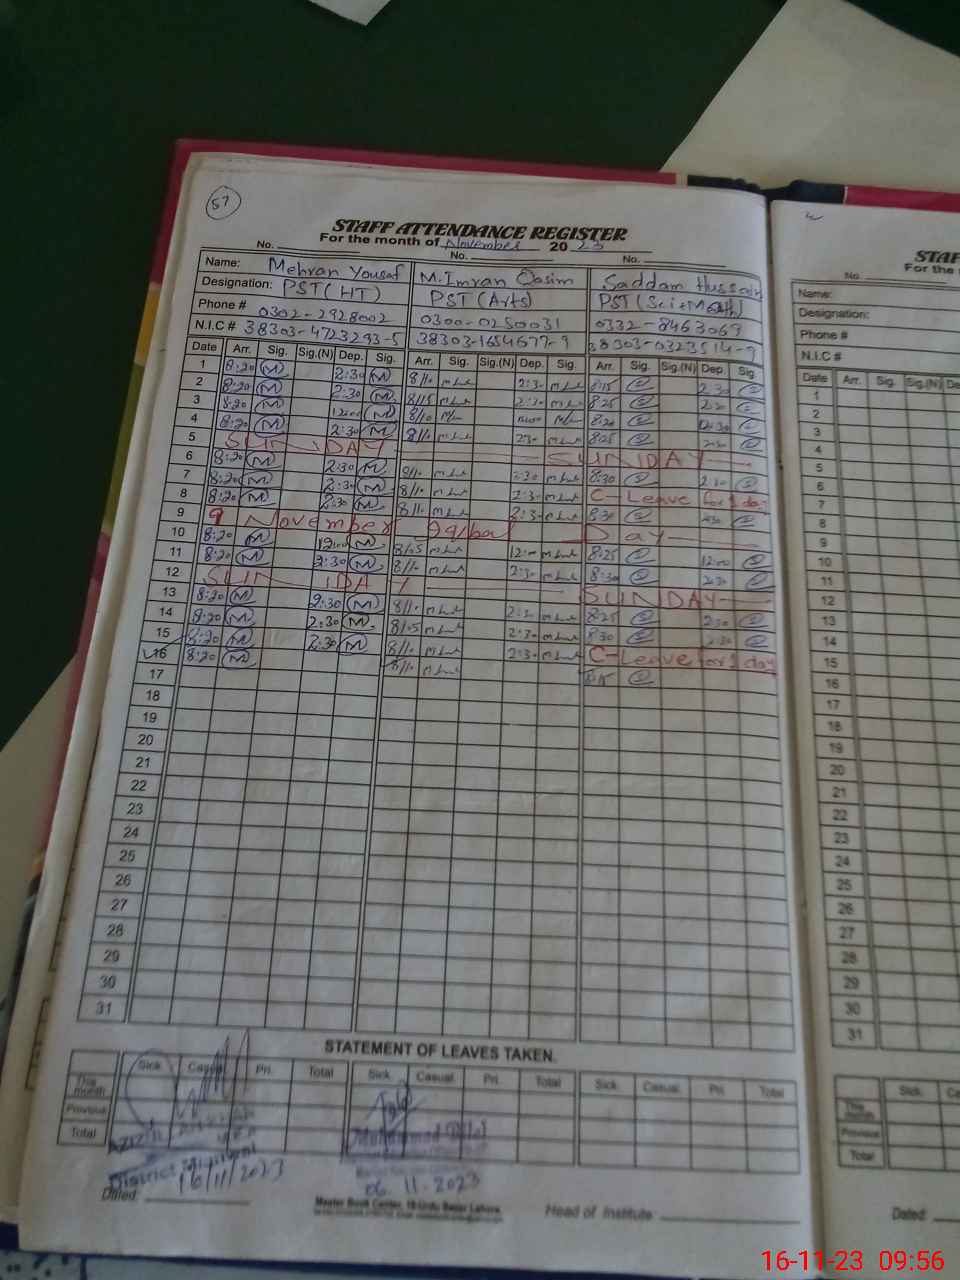 57
STAFF ATTENDANCE REGISTER
For the month of November 2023
No. No. No.
Name: Mehran Yousaf M. Imran Qasim Saddam Hussain
Designation: PST (HT) PST (Arts) PST (Sci+Math)
Phone # 0302-2928002 0300-0250031 0332-8463069
N.I.C # 38303-4723293-5 38303-1654677-9 38303-0323514-9
Date Arr. Sig. Sig.(N) Dep. Sig. Arr. Sig. Sig.(N) Dep. Sig. Arr. Sig. Sig.(N) Dep. Sig.
1 8:20 M 2:30 M 8/10 2:30 8:15 2:30
2 8:20 M 2:30 M 8/15 2:30 8:25 2:30
3 8:20 M 12:00 M 8/10 8:20 12:30
4 8:20 M 2:30 M 8/10 2:30 8:25 2:30
5 SUNDAY SUNDAY
6 8:20 M 2:30 M 8/10 2:30 8:30 2:30
7 8:20 M 2:30 M 8/10 2:30 C-Leave for 1 day
8 8:20 M 2:30 M 8/10 2:30 8:30 2:30
9 9 November Iqbal Day
10 8:20 M 12:00 M 8/05 12:00 8:25 12:00
11 8:20 M 2:30 M 8/10 2:30 8:30 2:30
12 SUNDAY SUNDAY
13 8:20 M 2:30 M 8/10 2:30 8:25 2:30
14 8:20 M 2:30 M 8/05 2:30 8:30 2:30
15 8:20 M 2:30 M 8/10 2:30 C-Leave for 1 day
16 8:20 M 8/10 8:15
17
18
19
20
21
22
23
24
25
26
27
28
29
30
31
STATEMENT OF LEAVES TAKEN.
Sick. Casual. Pri. Total Sick. Casual. Pri. Total Sick. Casual. Pri. Total
This month
Previous
Total
District
16/11/2023
06.11.2023
Dated:
Master Book Center, 18-Urdu Bazar Lahore.
Head of Institute
STAF
For the
No.
Name:
Designation:
Phone #
N.I.C #
Date Arr. Sig. Sig.(N) De
1
2
3
4
5
6
7
8
9
10
11
12
13
14
15
16
17
18
19
20
21
22
23
24
25
26
27
28
29
30
31
Sick. Ca
This month
Previous
Total
Dated:
16-11-23 09:56